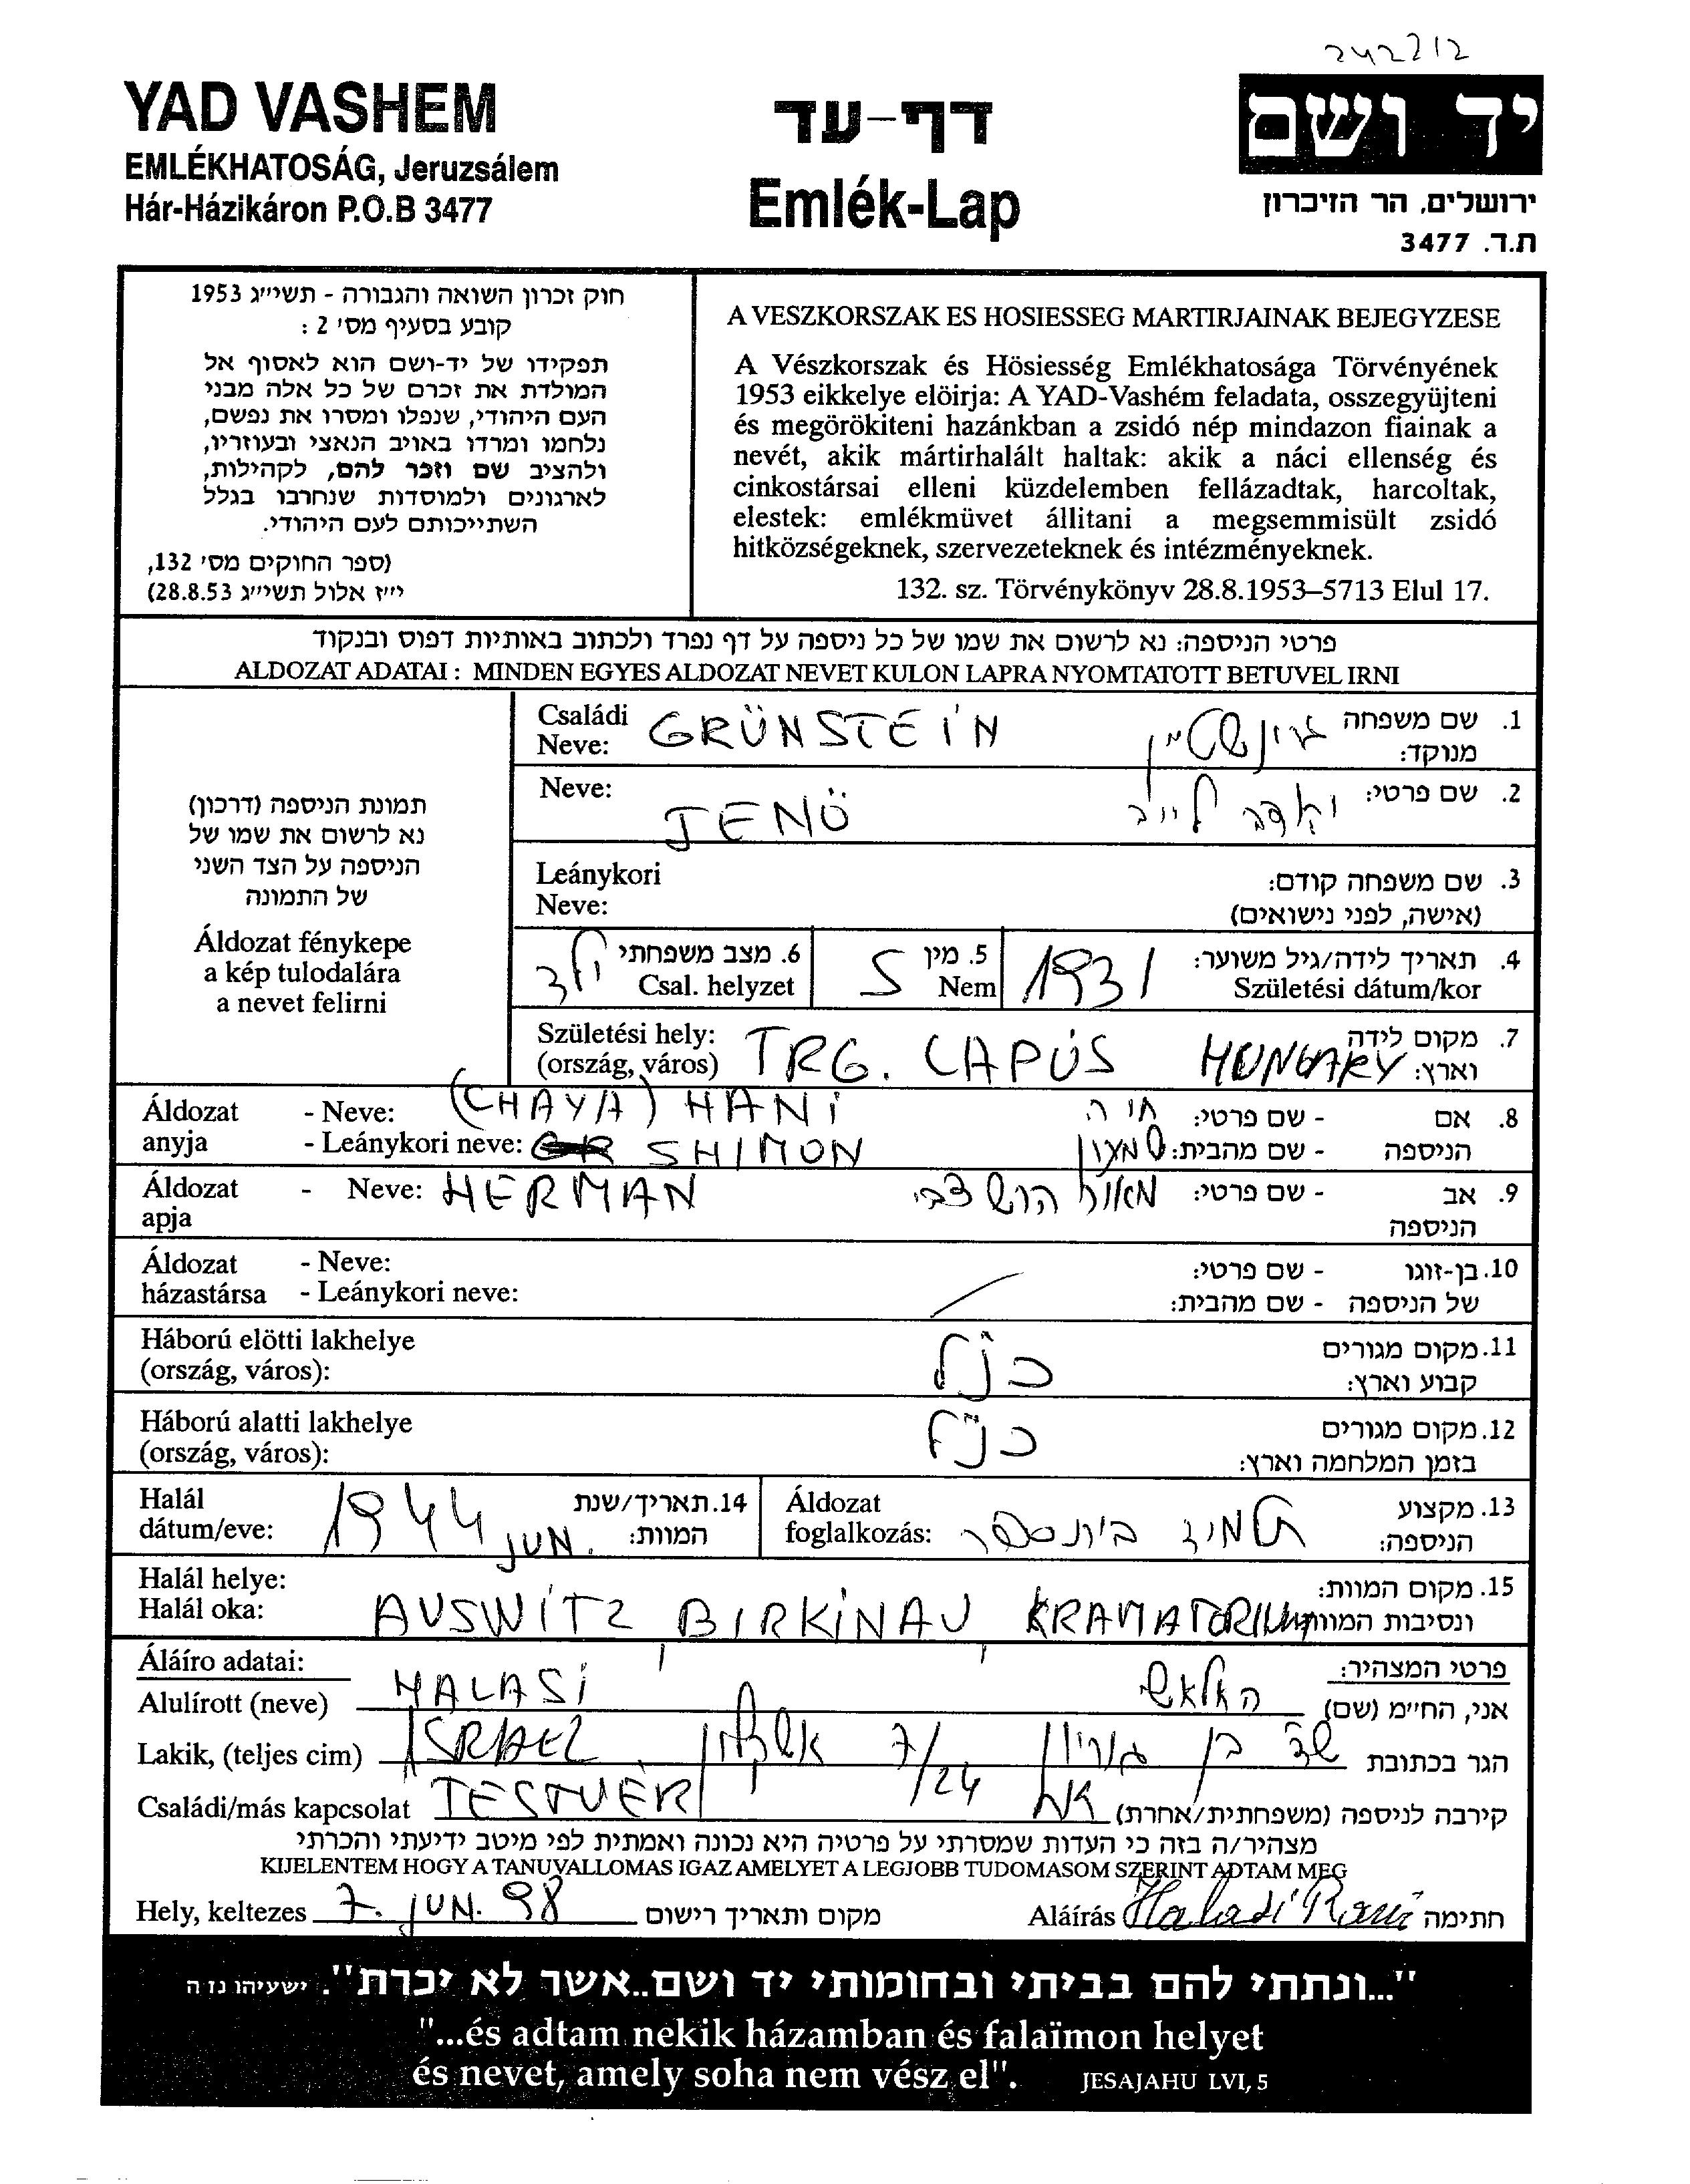 242712
YAD VASHEM
EMLÉKHATOSÁG, Jeruzsálem
Hár-Házikáron P.O.B 3477
דף-עד
Emlék-Lap
יד ושם
ירושלים, הר הזיכרון
ת.ד. 3477
חוק זכרון השואה והגבורה - תשי״ג 1953
קובע בסעיף מס׳ 2 :
תפקידו של יד-ושם הוא לאסוף אל
המולדת את זכרם של כל אלה מבני
העם היהודי, שנפלו ומסרו את נפשם,
נלחמו ומרדו באויב הנאצי ובעוזריו,
ולהציב שם וזכר להם, לקהילות,
לארגונים ולמוסדות שנחרבו בגלל
השתייכותם לעם היהודי.
(ספר החוקים מס׳ 132,
י״ז אלול תשי״ג 28.8.53)
A VESZKORSZAK ES HOSIESSEG MARTIRJAINAK BEJEGYZESE
A Vészkorszak és Hösiesség Emlékhatosága Törvényének
1953 eikkelye elöirja: A YAD-Vashém feladata, osszegyüjteni
és megörökiteni hazánkban a zsidó nép mindazon fiainak a
nevét, akik mártirhalált haltak: akik a náci ellenség és
cinkostársai elleni küzdelemben fellázadtak, harcoltak,
elestek: emlékmüvet állitani a megsemmisült zsidó
hitközségeknek, szervezeteknek és intézményeknek.
132. sz. Törvénykönyv 28.8.1953–5713 Elul 17.
פרטי הניספה: נא לרשום את שמו של כל ניספה על דף נפרד ולכתוב באותיות דפוס ובנקוד
ALDOZAT ADATAI : MINDEN EGYES ALDOZAT NEVET KULON LAPRA NYOMTATOTT BETUVEL IRNI
תמונת הניספה (דרכון)
נא לרשום את שמו של
הניספה על הצד השני
של התמונה
Áldozat fénykepe
a kép tulodalára
a nevet felirni
Családi Neve: GRÜNSTEIN גרינשטיין 1. שם משפחה מנוקד:
Neve: JENÖ לייב 2. שם פרטי:
Leánykori Neve: 3. שם משפחה קודם: (אישה, לפני נישואים)
ילד 6. מצב משפחתי Csal. helyzet S 5. מין Nem 1931 4. תאריך לידה/גיל משוער: Születési dátum/kor
Születési hely: (ország, város) TRG. LAPÚS HUNGARY 7. מקום לידה וארץ:
Áldozat anyja - Neve: (CHAYA) HANI חיה - שם פרטי: 8. אם הניספה
- Leánykori neve: SHIMON שמעון - שם מהבית:
Áldozat apja - Neve: HERMAN מאיר הירש צבי - שם פרטי: 9. אב הניספה
Áldozat házastársa - Neve: - שם פרטי: 10. בן-זוגו של הניספה
- Leánykori neve: - שם מהבית:
Háború elötti lakhelye (ország, város): כנ״ל 11. מקום מגורים קבוע וארץ:
Háború alatti lakhelye (ország, város): כנ״ל 12. מקום מגורים בזמן המלחמה וארץ:
Halál dátum/eve: 1944 JUN. 14. תאריך/שנת המוות: Áldozat foglalkozás: תלמיד בית ספר 13. מקצוע הניספה:
Halál helye: Halál oka: AUSWITZ BIRKINAU KRAMATORIUM 15. מקום המוות: ונסיבות המוות
Áláíro adatai: פרטי המצהיר:
Alulírott (neve) HALASI האלאשי אני, החי״מ (שם)
Lakik, (teljes cim) ISRAEL אשקלון 7/24 שד בן גוריון הגר בכתובת
Családi/más kapcsolat TESTVÉR אח קירבה לניספה (משפחתית/אחרת)
מצהיר/ה בזה כי העדות שמסרתי על פרטיה היא נכונה ואמתית לפי מיטב ידיעתי והכרתי
KIJELENTEM HOGY A TANUVALLOMAS IGAZ AMELYET A LEGJOBB TUDOMASOM SZERINT ADTAM MEG
Hely, keltezes 7. JUN. 98 מקום ותאריך רישום Aláírás Halasi חתימה
"...ונתתי להם בביתי ובחומותי יד ושם..אשר לא יכרת". ישעיהו נז ה
"...és adtam nekik házamban és falaïmon helyet
és nevet, amely soha nem vész el". JESAJAHU LVI, 5